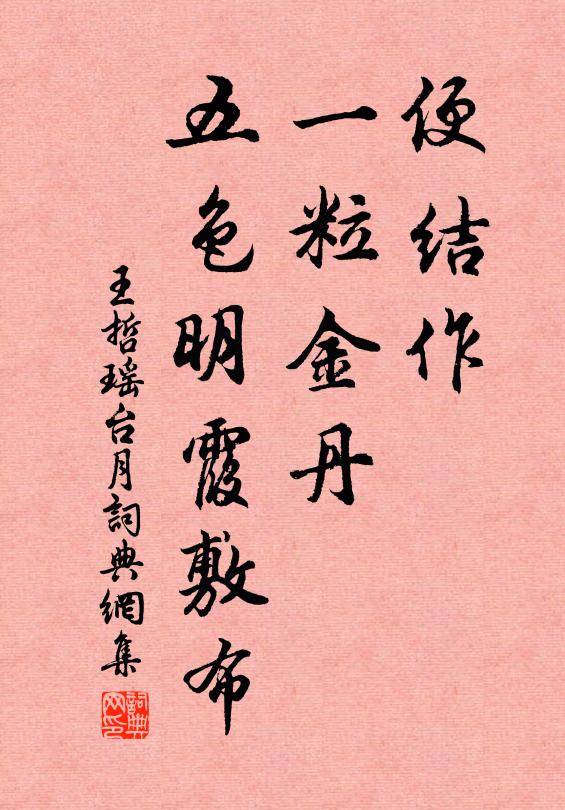 便结作
一粒金丹
五色明霞敷布
王哲瑶台月詞典網集
詞典网印